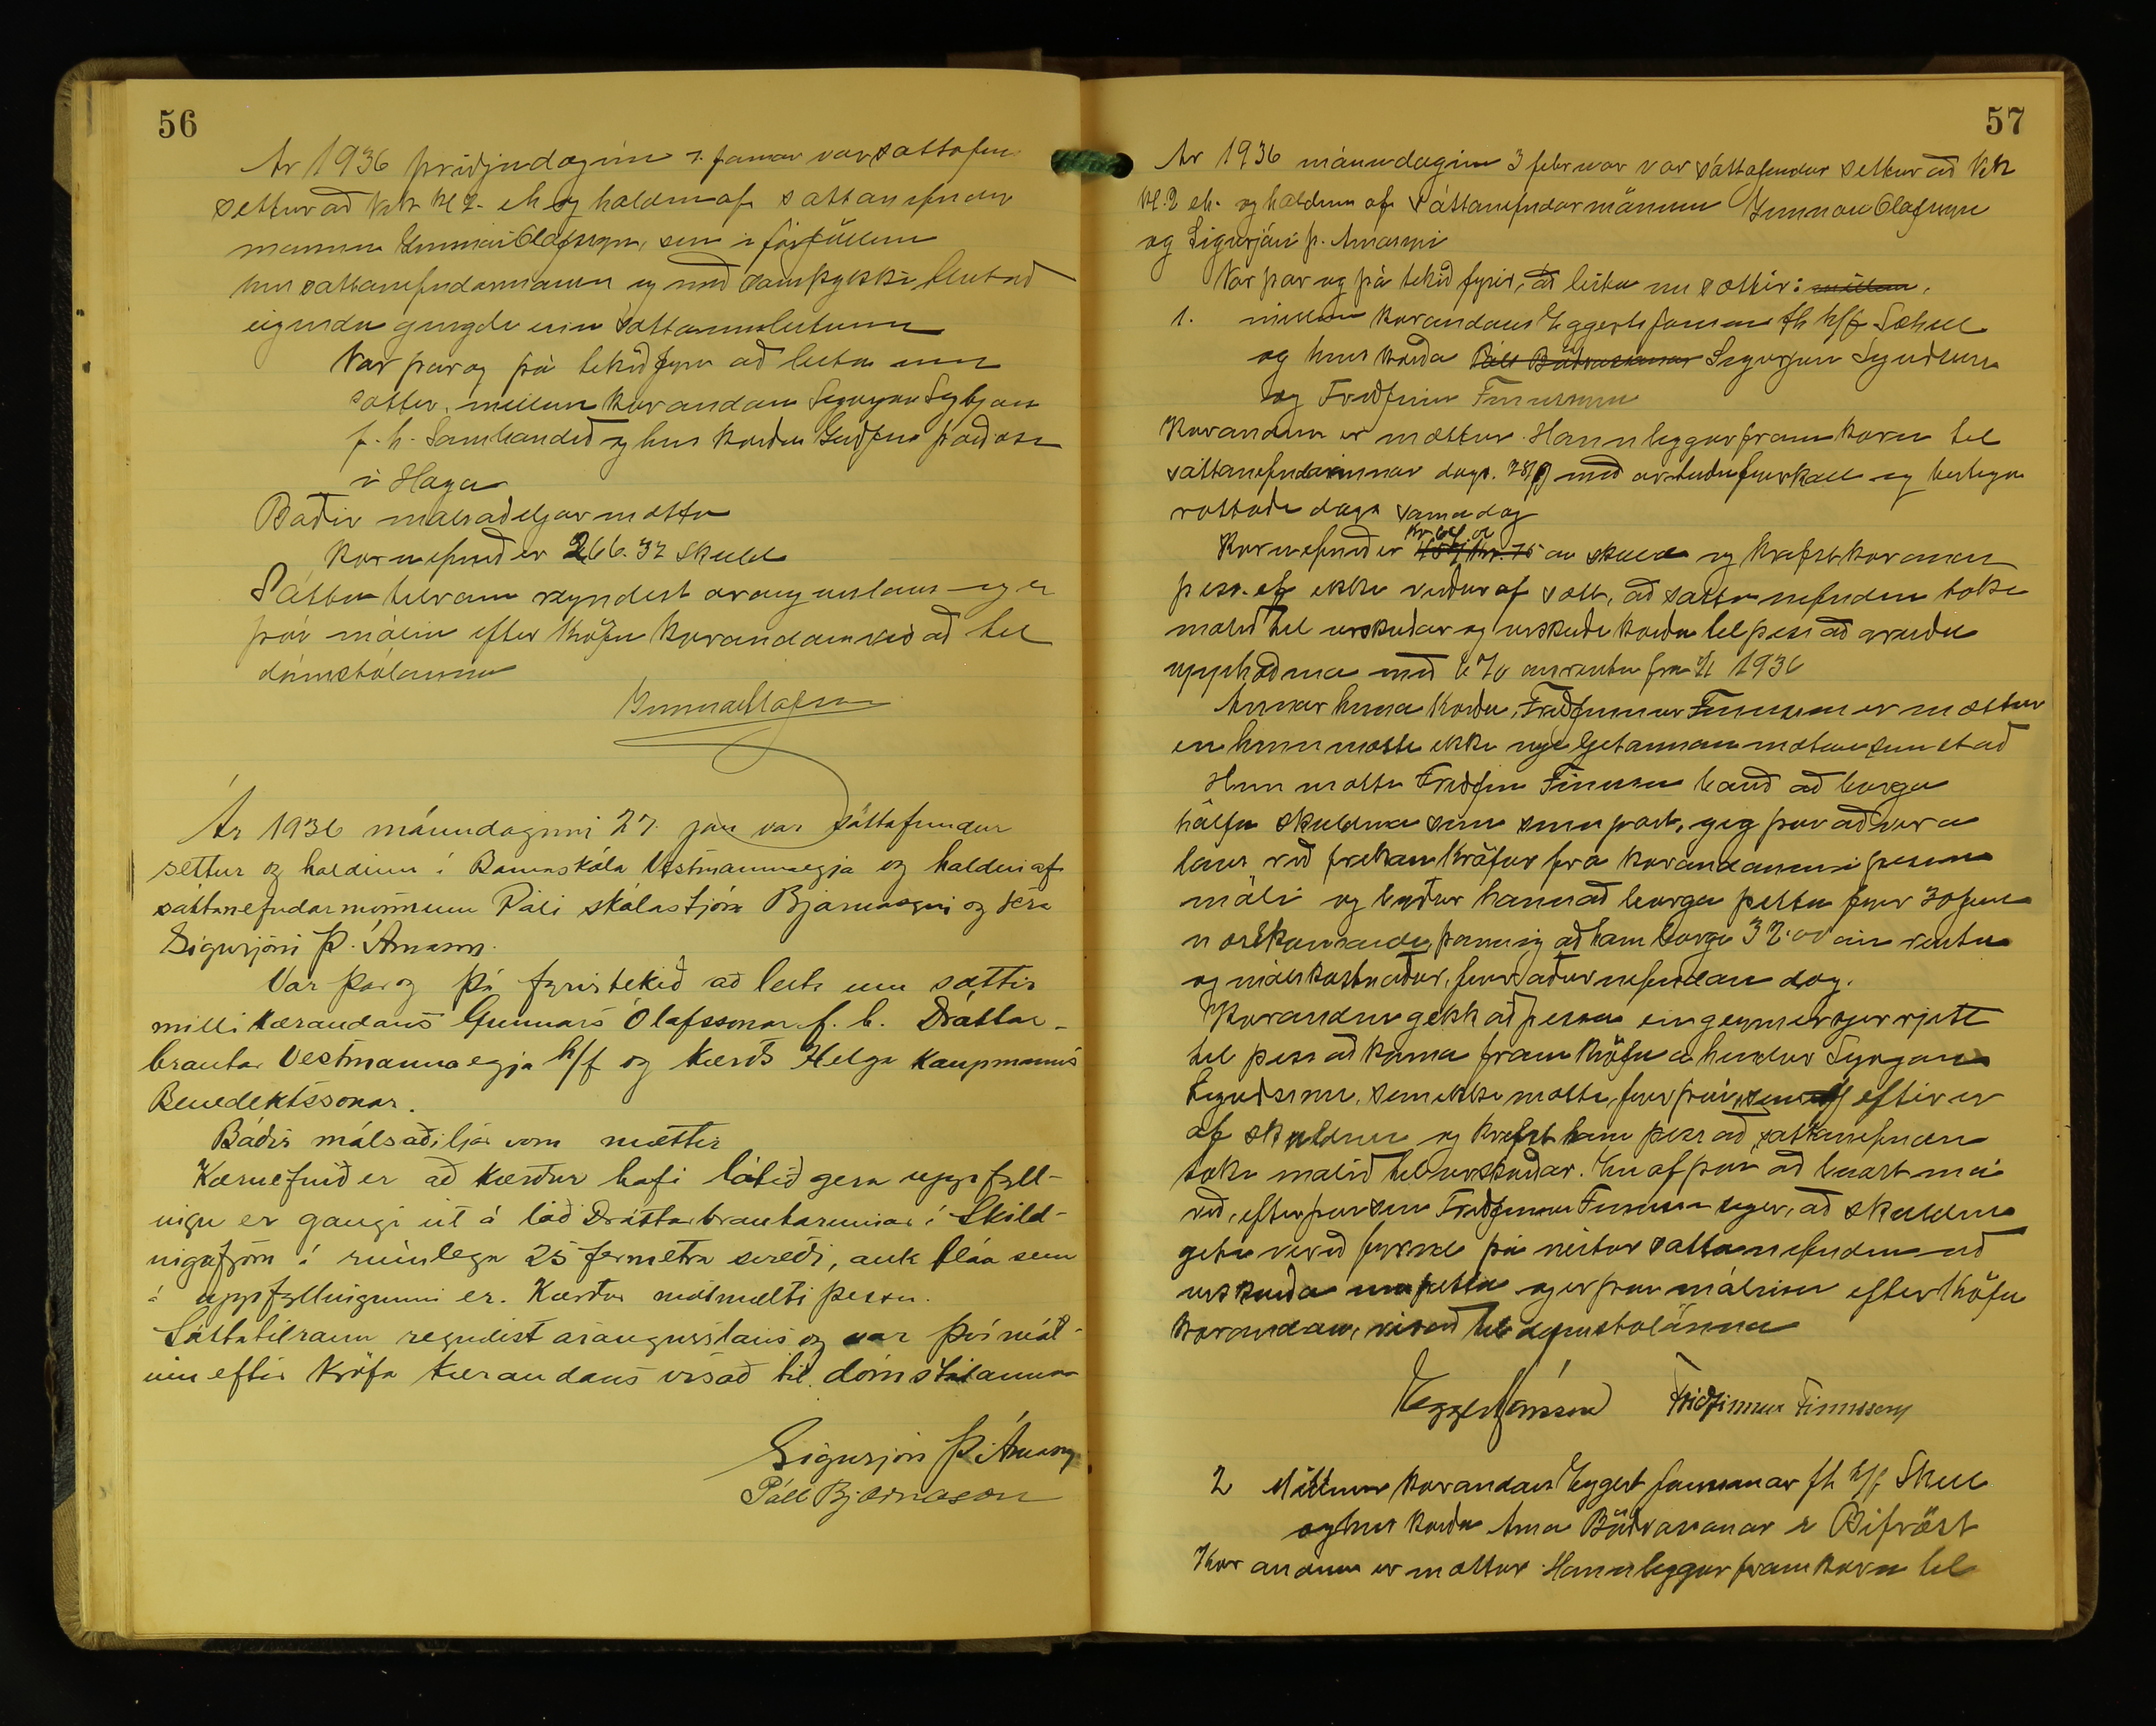 56
Ár 1936 þriðjudaginn 7. januar var sáttafun
settur að KFUK Kl 2 eh og haldinn af sáttanefndar
manninum Gunnari Ólafssyni, sem í forföllum
hins sáttanefndarmannsins og með samþykki hlutað
eigenda gengdi einn sáttaumleitunum
Var þar og þá tekið fyrir að leita um
sættir, millum kærandans
f. h. Sambandið og hins kærða Guðjóns
í Haga
Báðir málsaðiljar mættu
Kæruefnið er 266.32 skuld
Sáttatilraun reyndist árangurslaus og er
því málinu eftir kröfu kærandans vísað til
dómstólanna
Gunnar Ólafsson
Ár 1936 mánudaginn 27. jan var sáttafundur
settur og haldinn í Barnaskóla Vestmannaeyja og haldinn af
sáttanefndarmönnum Páli skólastjóra Bjarnasyni og séra
Sigurjóni Þ. Árnasyni.
Var þar og þá fyrirtekið að leita um sættir
milli kærandans Gunnars Ólafssonar f. h. Dráttar-
brautar Vestmannaeyja h/f og kærðs Helga kaupmanns
Benediktssonar.
Báðir málsaðiljar voru mættir
Kæruefnið er að kærður hafi látið gera uppfyll-
ingu er gangi út á lóð Dráttarbrautarinnar í Skild-
ingafjöru á rúmlega 25 fermetra svæði, auk fláa sem
á uppfyllingunni er. Kærður mótmælti þessu.
Sáttatilraun reyndist árangurslaus og var því mál-
inu eftir kröfu kærandans vísað til dómstólanna
Sigurjón Þ. Árnason
Páll Bjarnason
57
Ár 1936 mánudaginn 3 februar var sáttafundur settur að
Kl. 2 eh. og haldinn af sáttanefndarmönnum Gunnari Ólafssyni
og Sigurjóni Þ. Árnasyni
Var þar og þá tekið fyrir, að leita um sættir: millum
1. millum kærandans Eggerts Jónssonar fh h/f
og hins kærða Páls Böðvarssonar Sigurjóns
og Friðfinns Finnssonar
Kærandinn er mættur. Hann leggur fram kæru til
sáttanefndarinnar dags. með fyrirkall og
dags sama dag
Kæruefnið er kr 157 kr. 75 au skuld og krefst kærandinn
þess, ef ekki verður af sátt, að sáttanefndin taki
málið til úrskurðar og úrskurði kærða til þess að greiða
upphæðina með 6% ársrentu frá 1/1 1936
Annar hinna kærðu, Friðfinnur Finnsson er mættur
en hinn mætti ekki
Hinn mætti Friðfinnur Finnsson bauð að borga
hálfa skuldina sem sinn part, gegn því að vera
laus við frekari kröfur frá kærandanum í þessu
máli og býður hann að borga þetta fyrir
næstkomandi, þannig að hann borgi 32.00 án rentu
og málskostnaðar, fyrir áðurnefndan dag.
Kærandinn gekk að þessu en geymir sjer rjett
til þess að koma fram kröfu á hendur Sigurjóni
sem ekki mætti, fyrir því, sem eftir er
af skuldinni og krefst hann þess að sáttanefndin
taki málið til úrskurðar. En af því að búast má
við, eftir því sem Friðfinnur Finnsson segir, að skuldin
geti verið fyrnd þá neitar sáttanefndin að
úrskurða um þetta og er því málinu eftir kröfu
kærandans, vísað til dómstólanna
Eggert Jónsson Friðfinnur Finnsson
2 Millum kærandans Eggert Jónssonar fh h/f
og hins kærða Árna Böðvarssonar í Bifröst
Kærandinn er mættur. Hann leggur fram kæru til